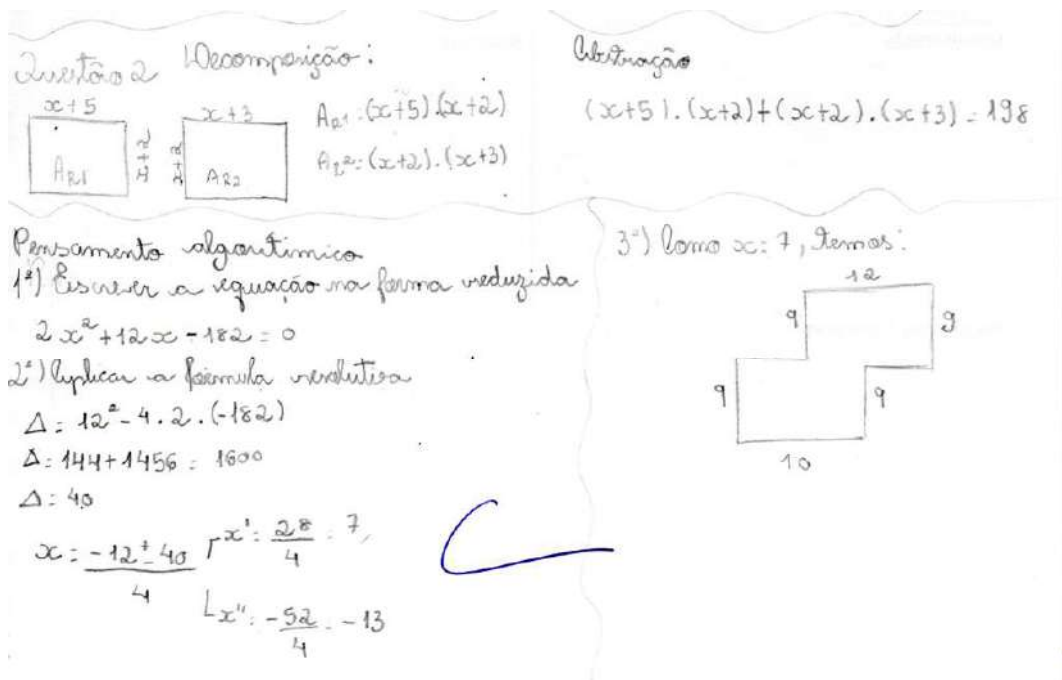 Questão 2
Decomposição:
x+5
x+3
x+2
x+2
AR1
AR2
AR1:(x+5).(x+2)
AR2:(x+2).(x+3)
Abstração
(x+5).(x+2)+(x+2).(x+3)=198
Pensamento algorítimico
1º) Escrever a equação na forma reduzida
2x²+12x-182=0
2º) Aplicar a fórmula resolutiva
Δ=12²-4.2.(-182)
Δ=144+1456=1600
Δ=40
x=-12±40
4
x'=28/4=7
x''=-52/4=-13
3º) Como x:7, temos:
12
9
9
9
9
10